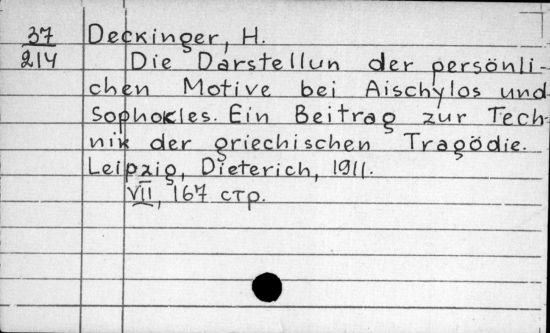 37 Deckinger, H.
214 Die Darstellun der persönli-
chen Motive bei Aischylos und
Sophokles. Ein Beitrag zur Tech-
nik der griechischen Tragödie.
Leipzig, Dieterich, 1911.
VII, 167 стр.